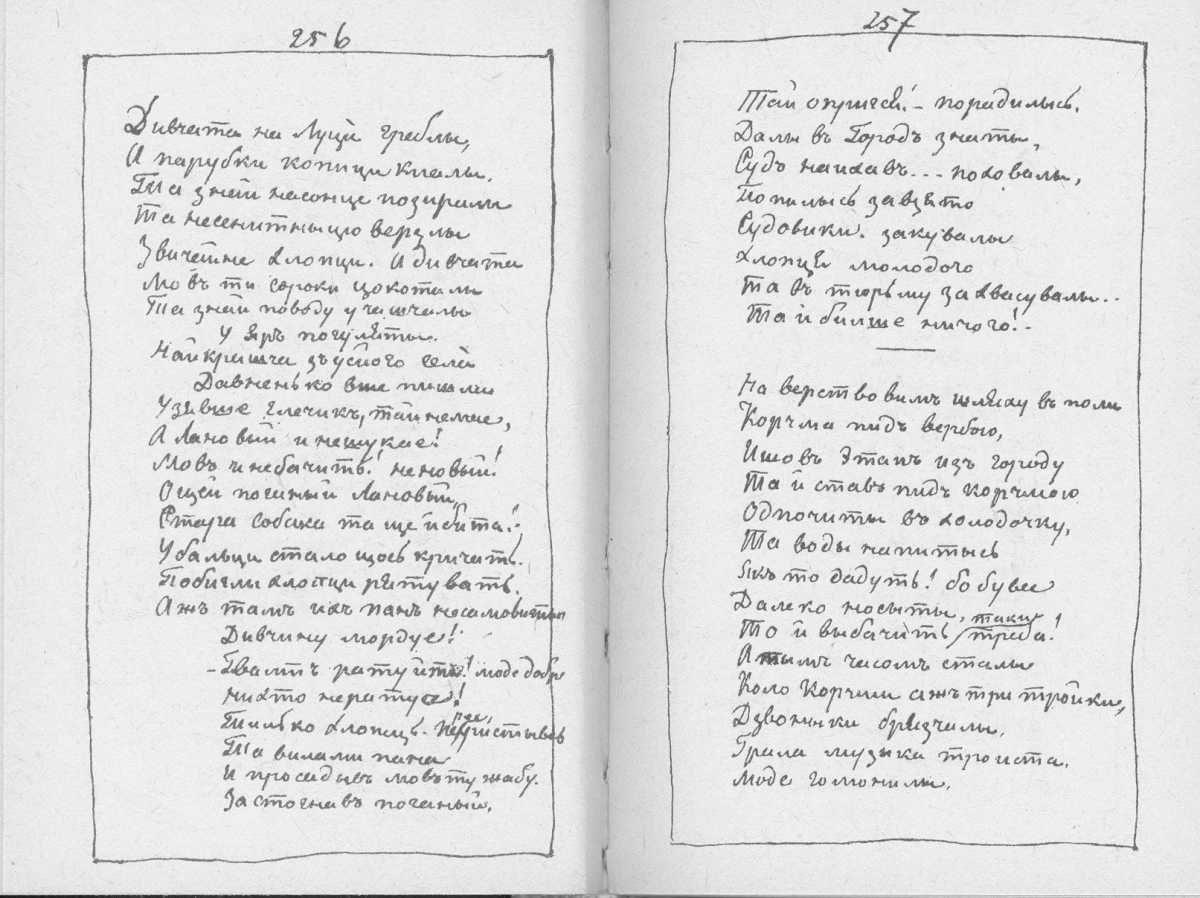 256
Дивчата на Луци гребли,
А парубки копици клалы.
Та знай насонце позирали
Та несенитныцю верзлы
Звичайне хлопци. А дивчата
Мовъ ти сороки цокотали
Та знай поводу учащалы
У Яръ погуляты.
Найкраща зъ усёго села
Давненько вже пишла
Узявше глечикъ, тай немае,
А Лановый и нешукае!
Мовъ и небачить! неновый!
Оцей поганый Лановый,
Стара собака та ще й бита!
У бальци стало щось кричать.
Побигли хлопци рятувать.
Ажъ тамъ ихъ панъ несамовитый
Дивчину мордує!
— Гвалтъ ратуйте! люде добри
нихто нератує!
Тилько хлопець.
Та вилами пана
И просадывъ мовъ ту жабу.
Застогнавъ поганый,
257
Тай опригся! — порадилысь.
Далы въ Городъ знаты,
Судъ наихавъ... поховалы,
Попилысь завзято
Судовики. закувалы
Хлопця молодого
Та въ тюрьму запасувалы..
Та й билше ничого!.
На верстовимъ шляху въ поли
Корчма пидъ вербою,
Ишовъ Этапъ изъ городу
Та й ставъ пидъ корчмою
Одпочиты въ холодочку,
Та воды напитысь
Якъ то дадуть! бо бува
Далеко носыты,
То й выбачить таки треба!
А тымъ часомъ сталы
Коло Корчми ажъ три тройки,
Дзвоныки брязчалы,
Грала музыка троиста.
Люде гомонилы.